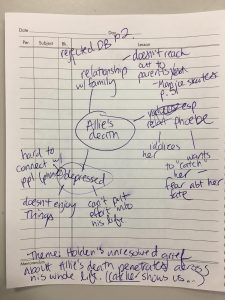 Date
rejected DB p.2
Per. Subject Rm. Lesson
doesn't reach
out to
parents
relationship
w/ family
p.51
Allie's
death
esp
relat Phoebe
idolizes
her
wants
to "catch"
her
fear abt her
fate
hard to
connect w/
ppl
depressed
doesn't enjoy
things
can't put
effort into
his life
Theme: Holden's unresolved grief
about Allie's death penetrates across
his whole life. (catcher shows us...)